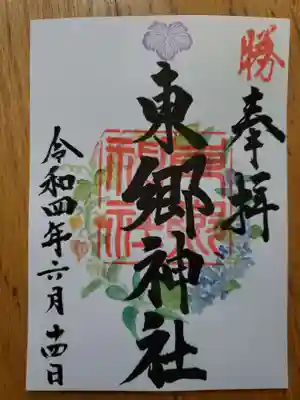 勝
奉拝
東郷神社
東郷神社
令和四年六月十四日